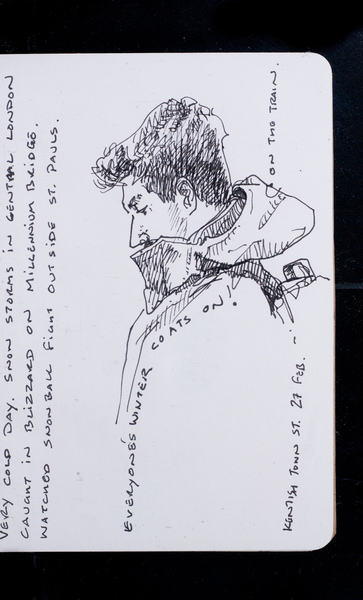 VERY COLD DAY. SNOW STORMS IN CENTRAL LONDON
CAUGHT IN BLIZZARD ON MILLENNIUM BRIDGE.
WATCHED SNOWBALL FIGHT OUTSIDE ST. PAULS.
EVERYONE'S WINTER COATS ON!
KENTISH TOWN ST. 27 FEB. ~ ON THE TRAIN.